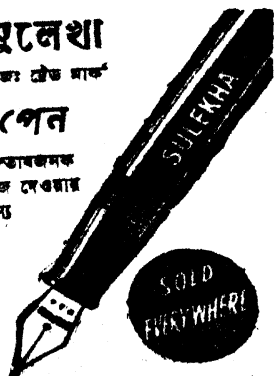 সুলেখা
রেজঃ ট্রেড মার্ক
পেন
কাজ দেওয়ার
SULEKHA
SOLD
EVERYWHERE